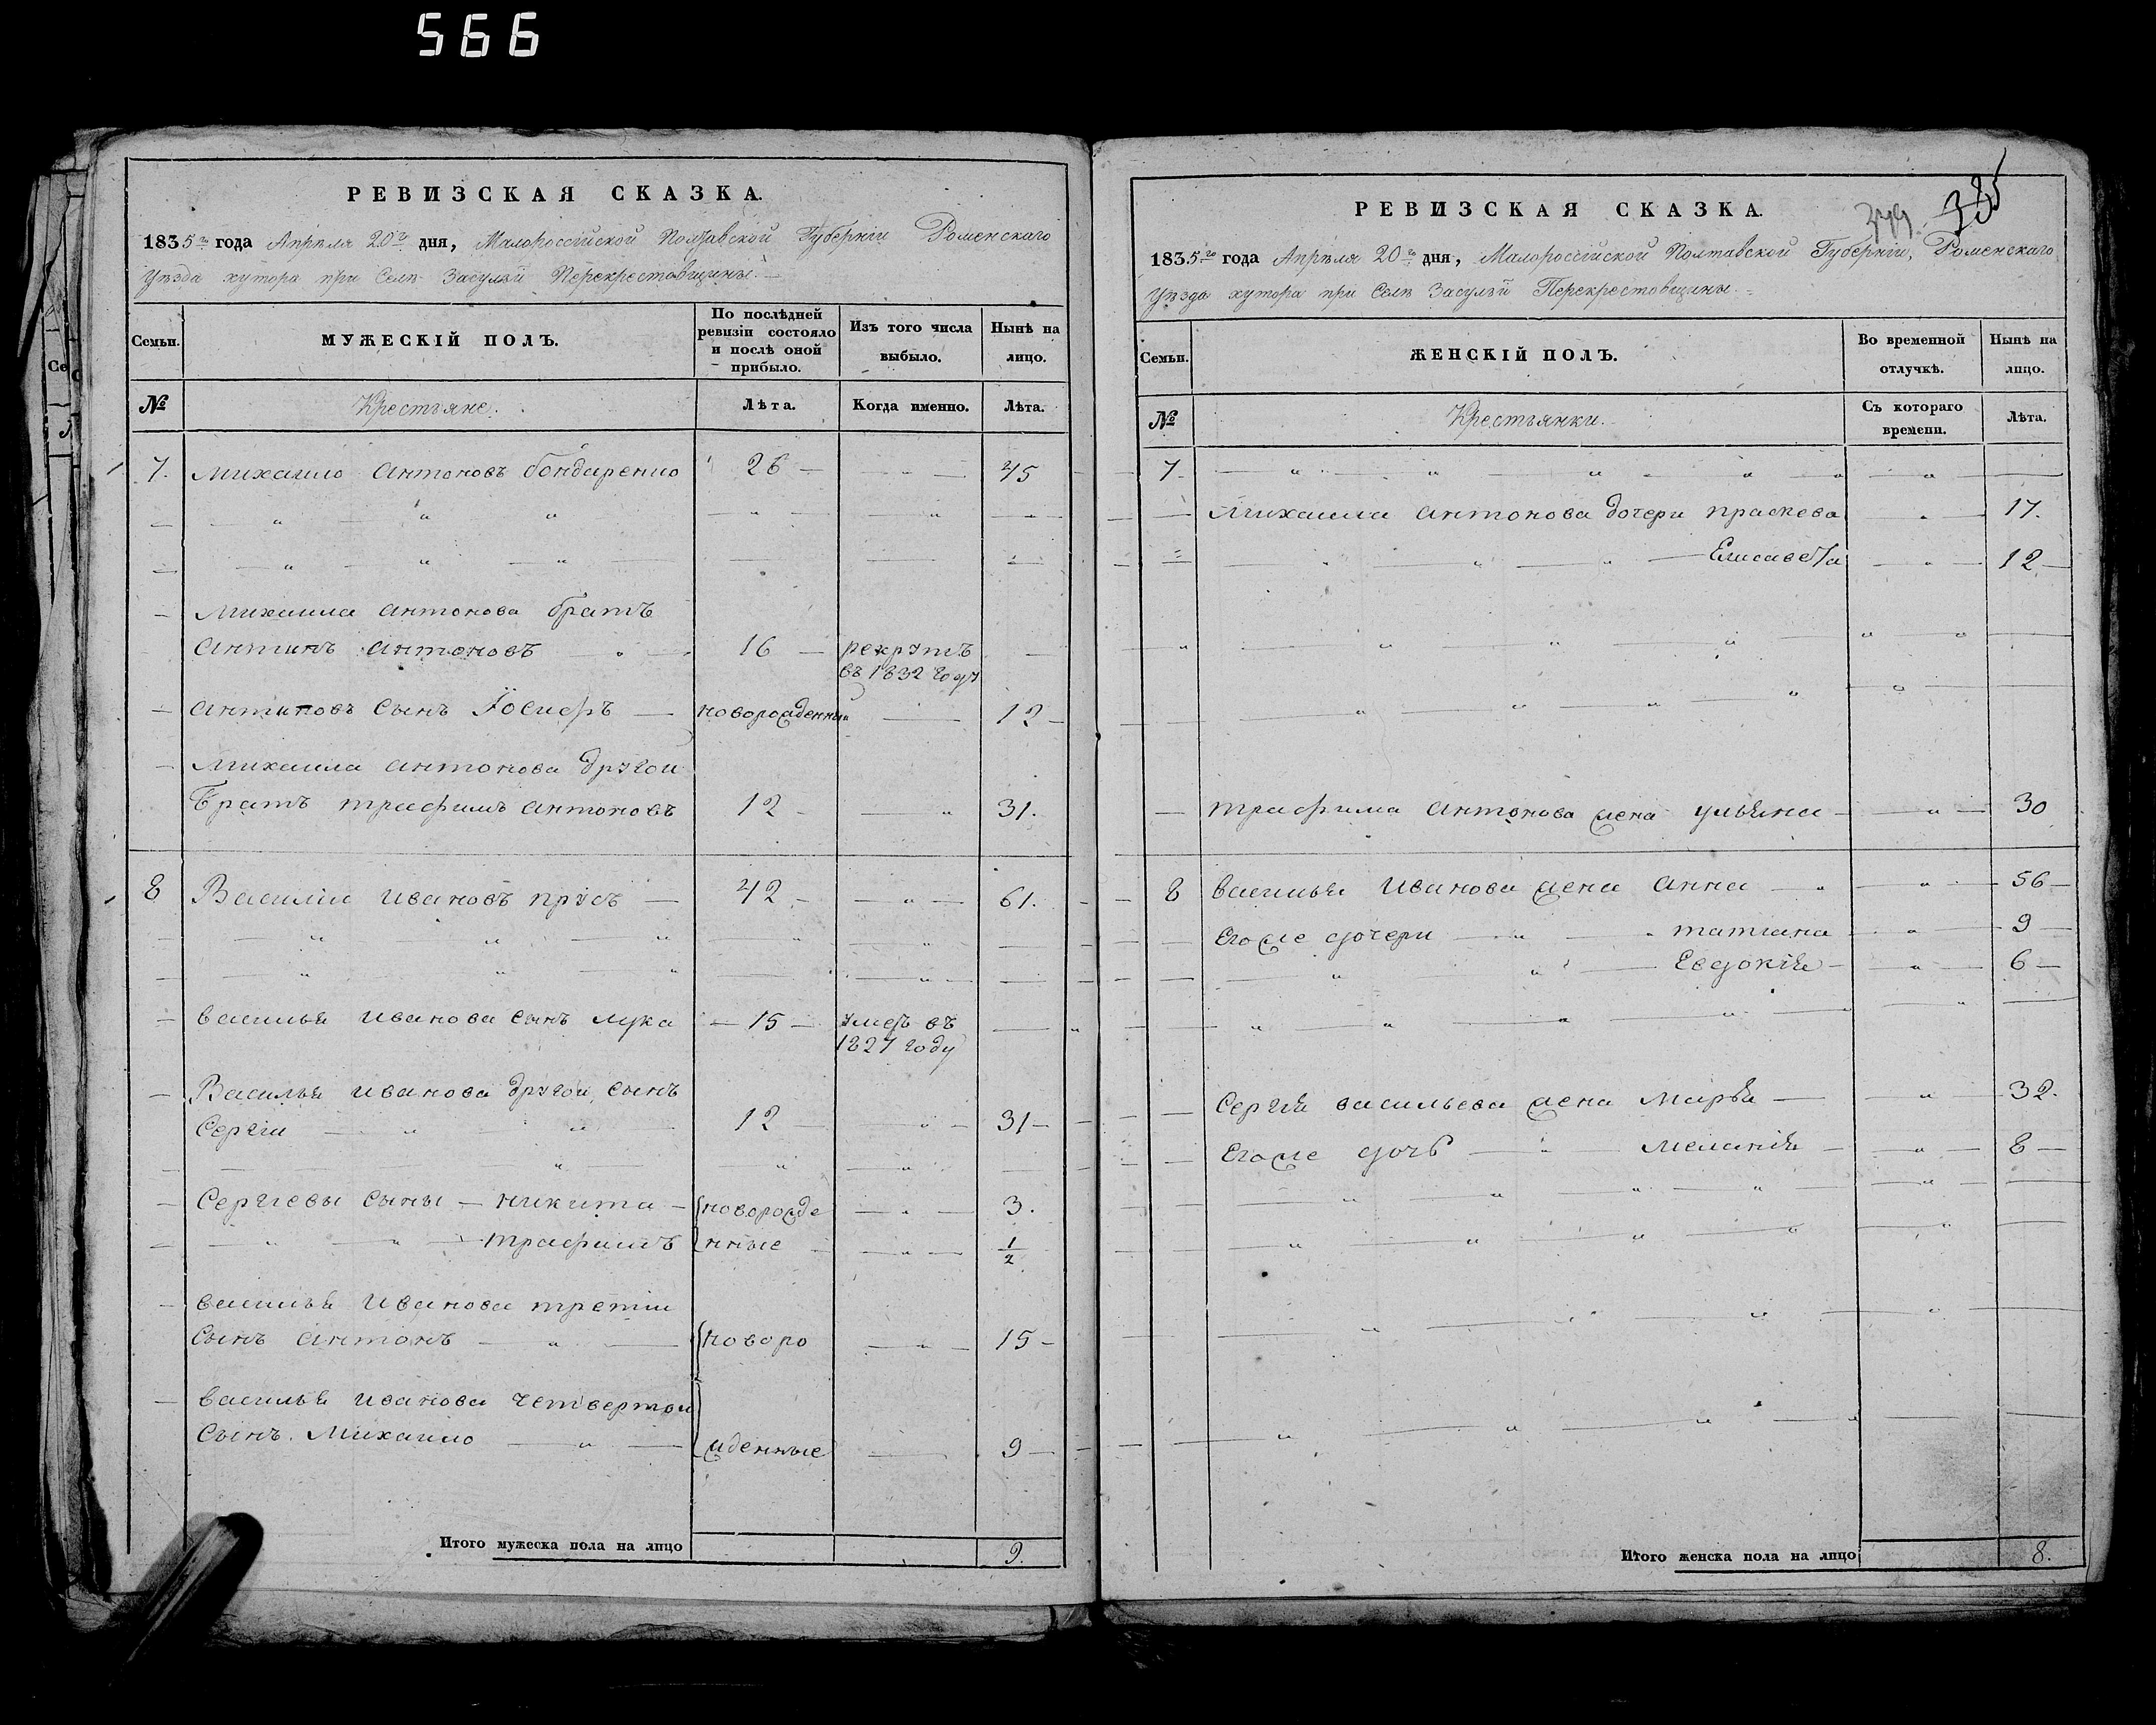 566
РЕВИЗСКАЯ СКАЗКА.
1835го года Апреля 20го дня, Малороссійской Полтавской Губерніи Роменскаго
Уѣзда хутора при Селѣ Засульи Перекрестовщины.
Семьи. МУЖЕСКІЙ ПОЛЪ. По послѣдней ревизіи состояло и послѣ оной прибыло. Изъ того числа выбыло. Нынѣ на лицо.
№ Крестьяне. Лѣта. Когда именно. Лѣта.
7. Михаило Антоновъ Бондаренко 26 45
Михаила Антонова братъ
Антипъ Антоновъ 16 рекрутъ
въ 1832 году
Антиповъ сынъ Іосифъ новорожденный 12
Михаила Антонова другой
братъ Трафимъ Антоновъ 12 31.
8 Василій Ивановъ Прусъ 42 61.
Василья Иванова сынъ Лука 15 умеръ въ
1827 году
Василья Иванова другой сынъ
Сергій 12 31
Сергіевы сыны Никита новорожде 3.
Трафимъ нные 1/2
Василья Иванова третій
сынъ Антонъ новоро 15
Василья Иванова четвертой
сынъ Михаило жденные 9
Итого мужеска пола на лицо 9.
385
379
РЕВИЗСКАЯ СКАЗКА.
1835го года Апрѣля 20го дня, Малороссійской Полтавской Губерніи, Роменскаго
Уѣзда хутора при Селѣ Засульи Перекрестовщины.
Семьи. ЖЕНСКІЙ ПОЛЪ. Во временной отлучкѣ. Нынѣ на лицо.
№ Крестьянки. Съ котораго времени. Лѣта.
7.
Михаила Антонова дочери Праскева 17.
Елисавета 12
Трафима Антонова жена Ульяна 30
8 Василья Иванова жена Анна 56
Егоже дочери Татіана 9
Евдокія 6
Сергія Васильева жена Марья 32.
Егоже дочь Меланія 8
Итого женска пола на лицо 8.